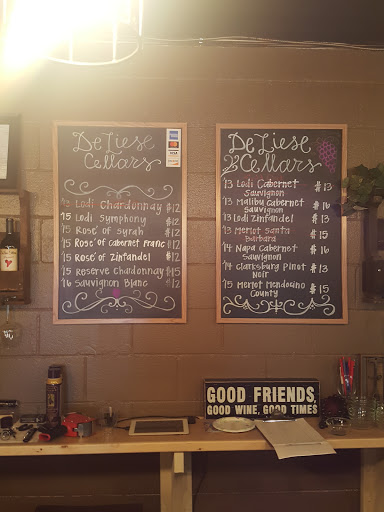 De Liese
Cellars
13 Lodi Chardonnay $12
15 Lodi Symphony $12
15 Rosé of Syrah $12
15 Rosé of Cabernet Franc $12
15 Rosé of Zinfandel $12
15 Reserve Chardonnay $15
'16 Sauvignon Blanc $12
De Liese
Cellars
13 Lodi Cabernet $13
Sauvignon
13 Malibu Cabernet $16
Sauvignon
13 Lodi Zinfandel $13
13 Merlot Santa $15
Barbara
'14 Napa Cabernet $16
Sauvignon
'14 Clarksburg Pinot $13
Noir
'15 Merlot Mendocino $15
County
GOOD FRIENDS,
GOOD WINE, GOOD TIMES